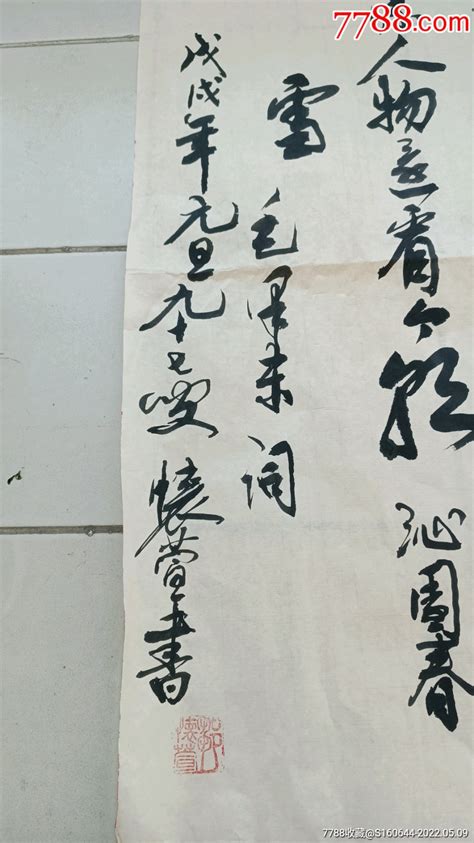 7788.com
人物還看今朝 沁園春
雪 毛澤東词
戊戌年元旦九十七叟 懷萱書
懷萱
7788收藏@S160644-2022.05.09